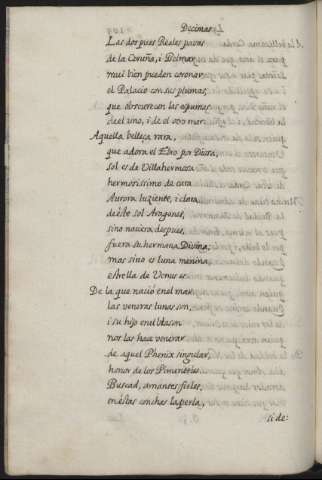 Decimas.
Las dos pues Reales pavas
de la Coruña, i Pelmar
mui bien pueden coronar
el Palacio con sus plumas,
que obscurecen las espumas
de el uno, i de el otro mar.
Aquella belleça rara,
que adora el Ebro por Diosa,
sol es de Villahermosa
hermosissimo de cara
Aurora luziente, i clara
de este sol Aragones,
sino naciera despues,
fuera su hermana Divina,
mas sino es luna menina
estrella de Venus es
De la que nació en el mar
las veneras tunas son,
i su hijo en el blason
nos las hace venerar
de aquel Phenix singular,
honor de los Pimenteles
Buscad, amantes fieles,
en estas conchas la perla,
si de: